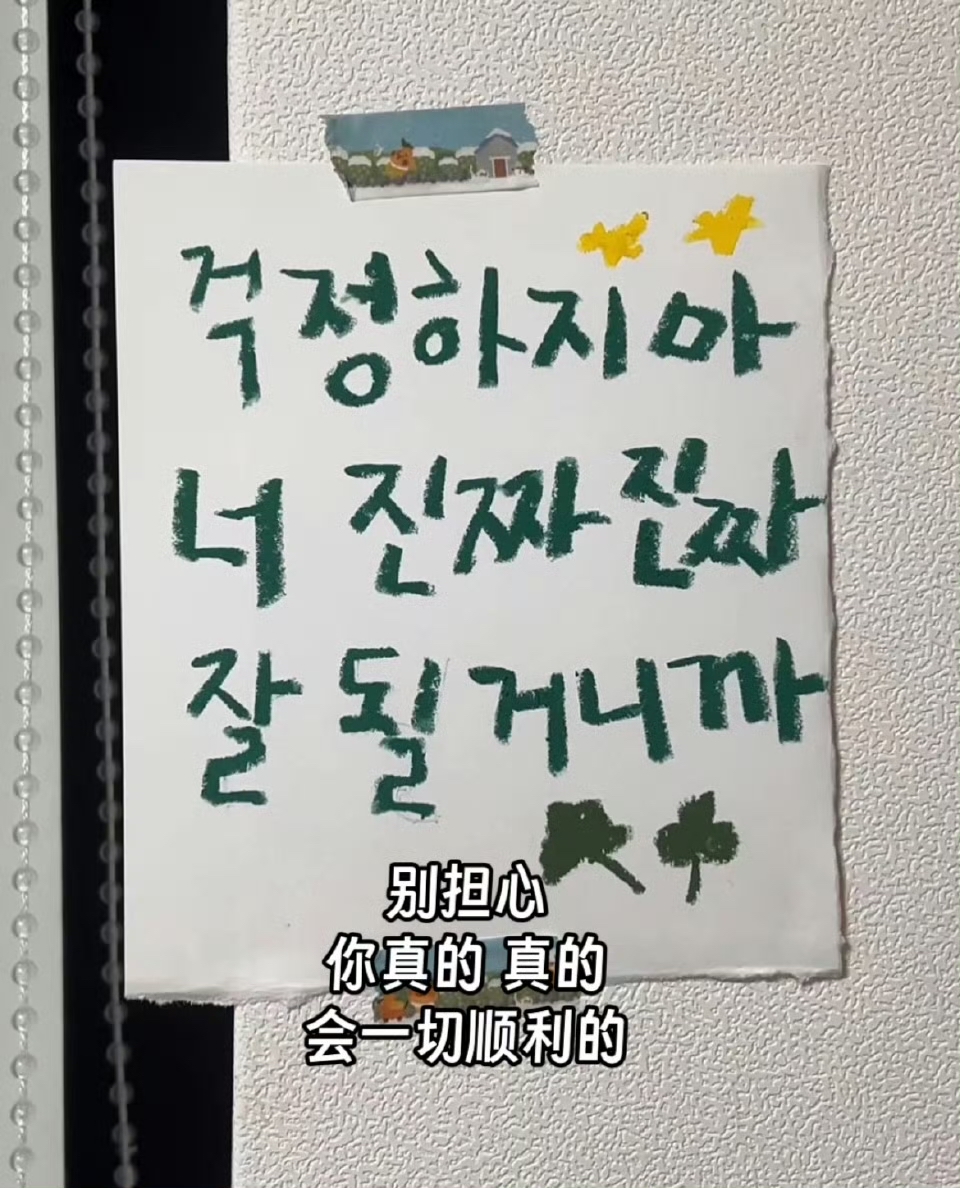 걱정하지마
너 진짜 진짜
잘 될 거니까
别担心
你真的 真的
会一切顺利的